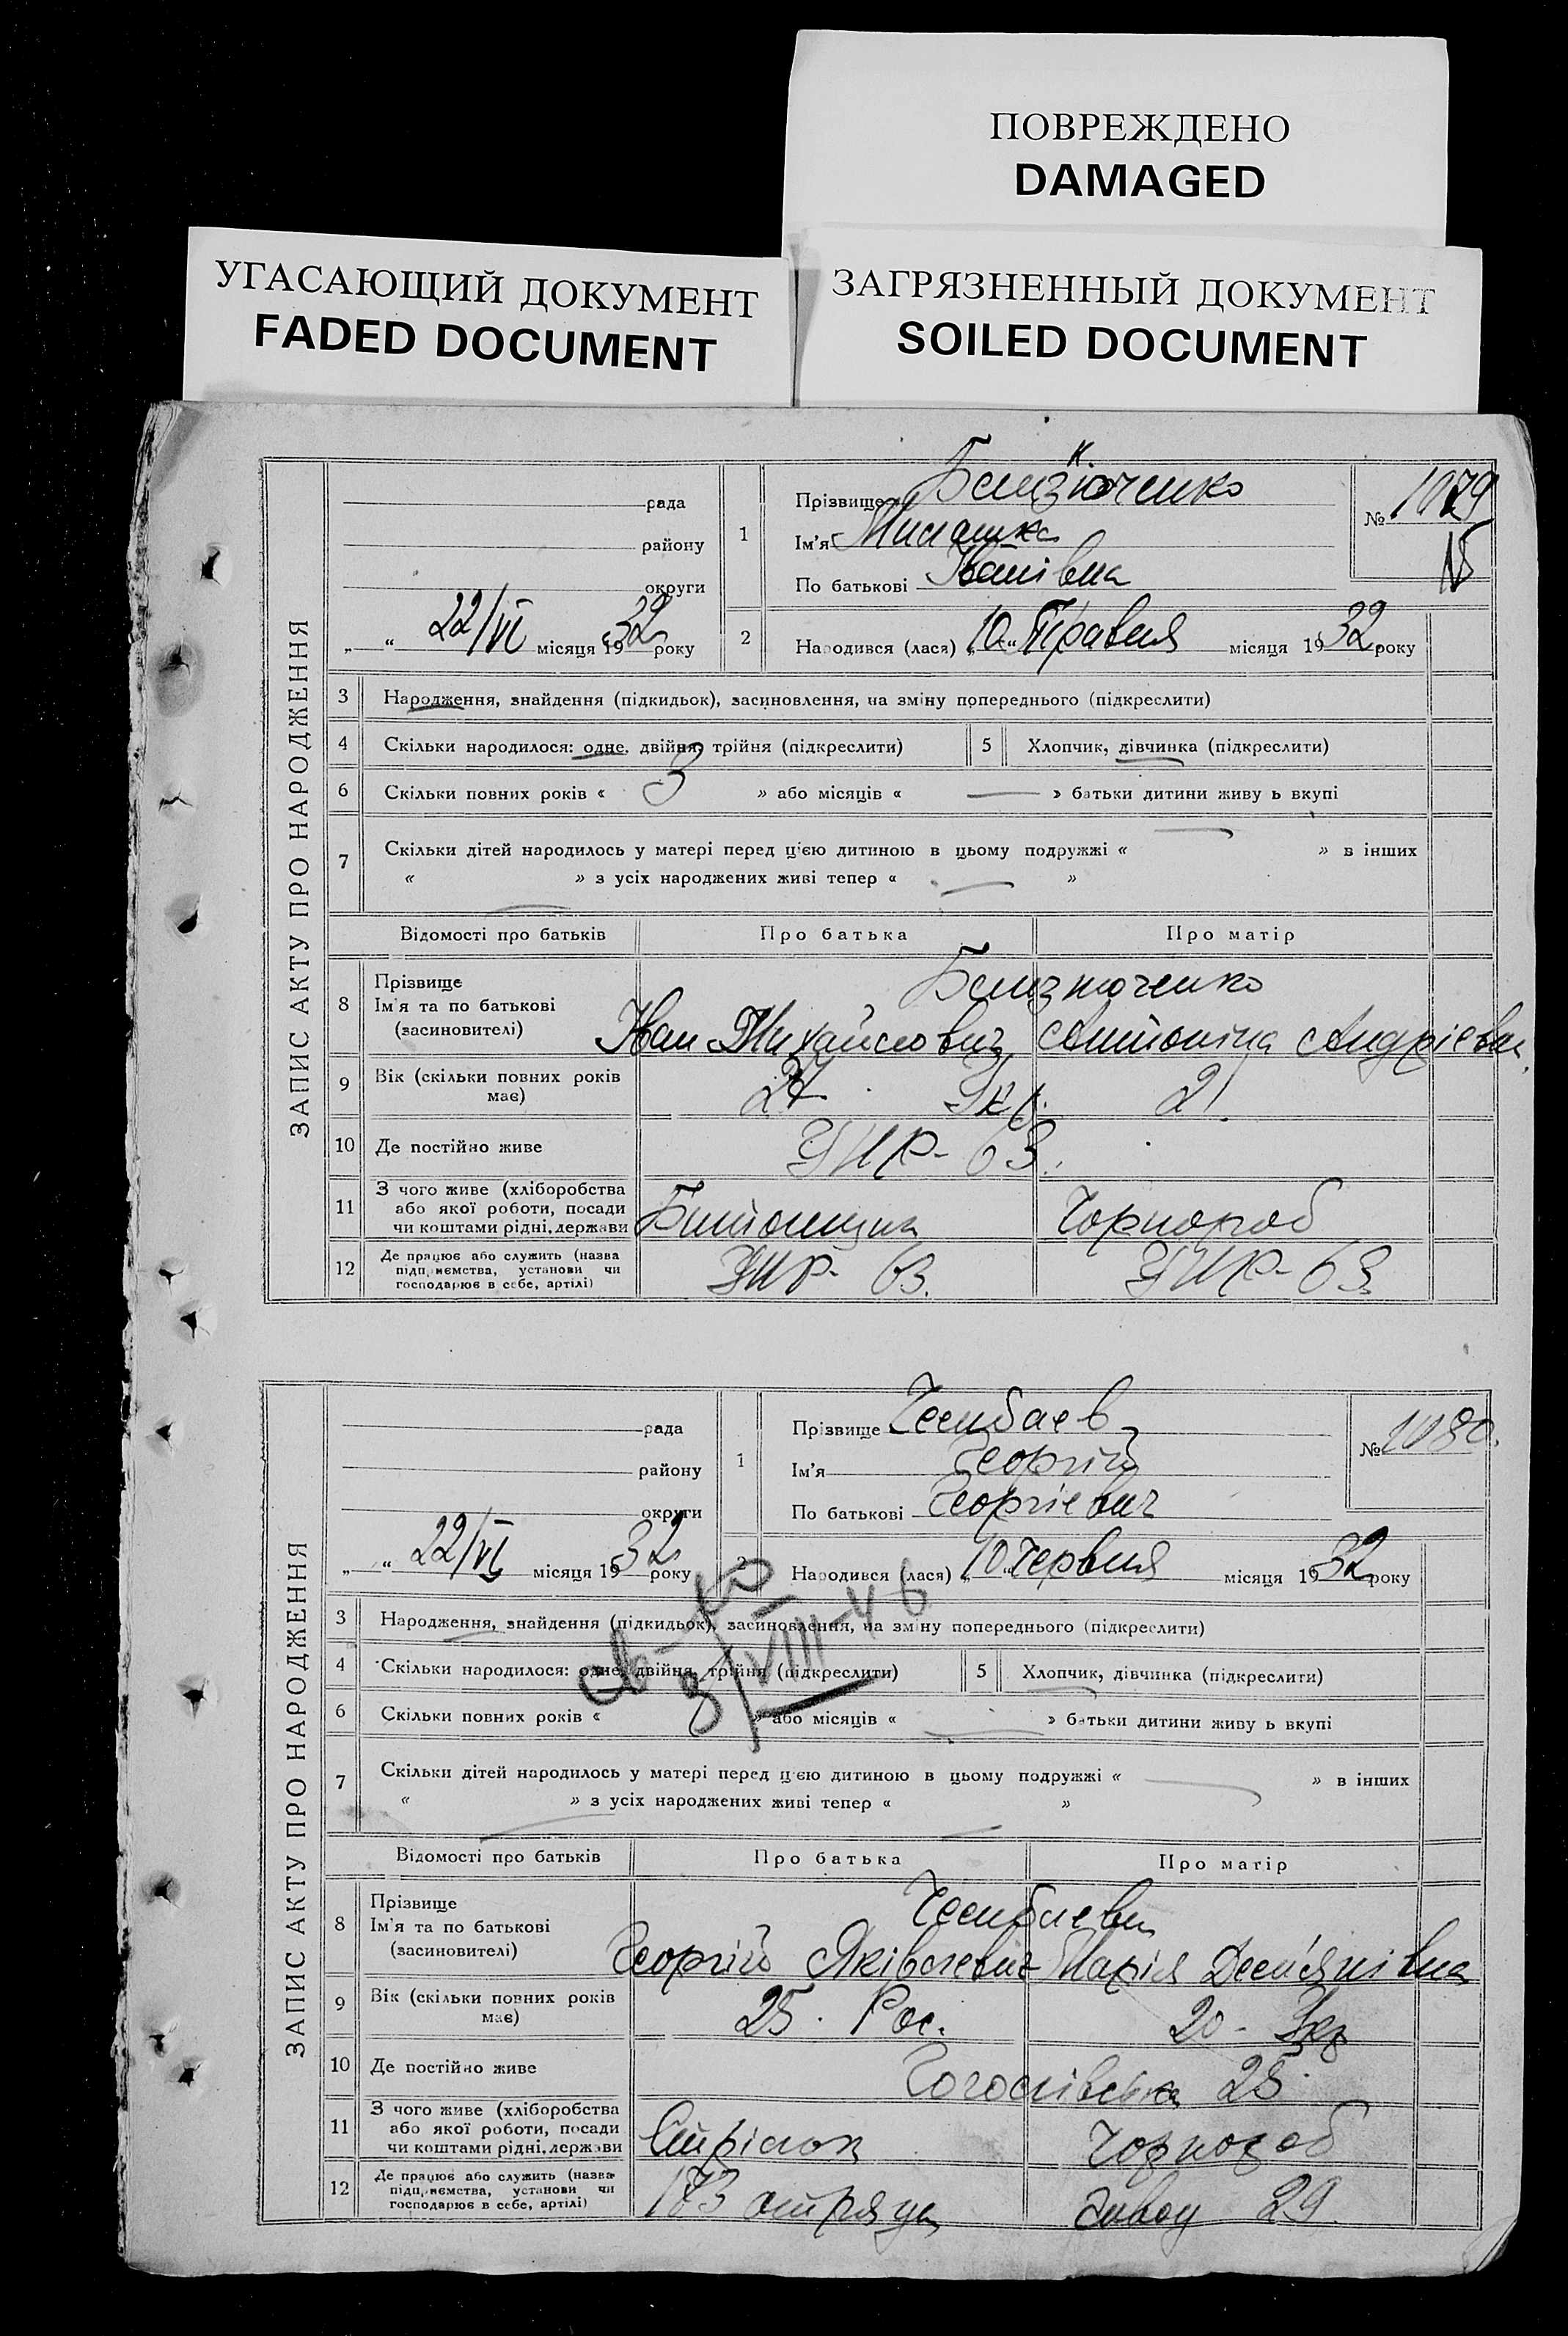 ПОВРЕЖДЕНО
DAMAGED
УГАСАЮЩИЙ ДОКУМЕНТ
FADED DOCUMENT
ЗАГРЯЗНЕННЫЙ ДОКУМЕНТ
SOILED DOCUMENT
ЗАПИС АКТУ ПРО НАРОДЖЕННЯ
рада
району
округи
„ “ 22/VI місяця 1932 року
1 Прізвище
Ім'я
По батькові Іванівна
№ 1079
2 Народився (лася) „10“ Травня місяця 1932 року
3 Народження, знайдення (підкидьок), засиновлення, на зміну попереднього (підкреслити)
4 Скільки народилося: одне, двійня, трійня (підкреслити) 5 Хлопчик, дівчинка (підкреслити)
6 Скільки повних років « 3 » або місяців « — » батьки дитини живу ь вкупі
7 Скільки дітей народилось у матері перед цією дитиною в цьому подружжі « — » в інших
« — » з усіх народжених живі тепер « — »
Відомості про батьків Про батька Про матір
8 Прізвище
Ім'я та по батькові
(засиновителі)
Близнюченко
Иван Михайлович Антоніна Андріевна
9 Вік (скільки повних років має) 27. Укр. 21.
10 Де постійно живе УНР-63.
11 З чого живе (хліборобства
або якої роботи, посади
чи коштами рідні, держави
Битонщик Чорнороб
12 Де працює або служить (назва
підприємства, установи чи
господарює в себе, артілі)
УНР-63. УНР-63
ЗАПИС АКТУ ПРО НАРОДЖЕННЯ
рада
району
округи
„ “ 22/VI місяця 1932 року
1 Прізвище
Ім'я Георгій
По батькові Георгіевич
№ 1080.
2 Народився (лася) „10“ червня місяця 1932 року
3/VIII-46
3 Народження, знайдення (підкидьок), засиновлення, на зміну попереднього (підкреслити)
4 Скільки народилося: одне, двійня, трійня (підкреслити) 5 Хлопчик, дівчинка (підкреслити)
6 Скільки повних років « » або місяців « — » батьки дитини живу ь вкупі
7 Скільки дітей народилось у матері перед цією дитиною в цьому подружжі « — » в інших
« — » з усіх народжених живі тепер « — »
Відомості про батьків Про батька Про матір
8 Прізвище
Ім'я та по батькові
(засиновителі)
Георгій Яківлевич Марія Дем'янівна
9 Вік (скільки повних років має) 25. Рос. 20 - Укр
10 Де постійно живе 25
11 З чого живе (хліборобства
або якої роботи, посади
чи коштами рідні, держави
Стрілок Чорнороб
12 Де працює або служить (назва
підприємства, установи чи
господарює в себе, артілі)
173 отряда завод 29